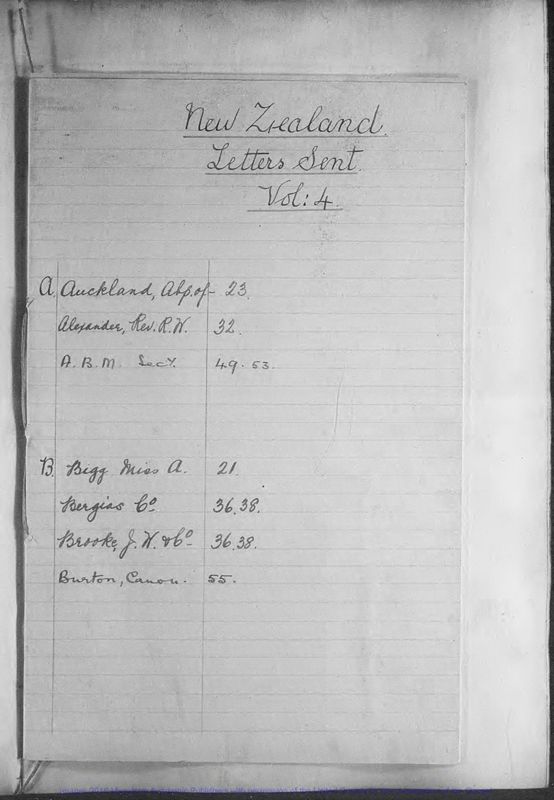 New Zealand.
Letters Sent.
Vol: 4.
A. Auckland, Abp. of - 23.
Alexander, Rev. R. W. 32.
A. B. M. Secy. 49. 53.
B. Begg Miss A. 21.
Bergias Co. 36. 38.
Brooke, J. W. & Co. 36. 38.
Burton, Canon. 55.